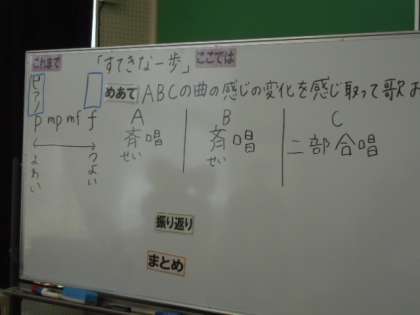 これまで 「すてきな一歩」 ここでは
ピアノ めあて ABCの曲の感じの変化を感じ取って歌お
p mp mf f
よわい つよい
A B C
斉唱 斉唱 二部合唱
せい せい
振り返り
まとめ